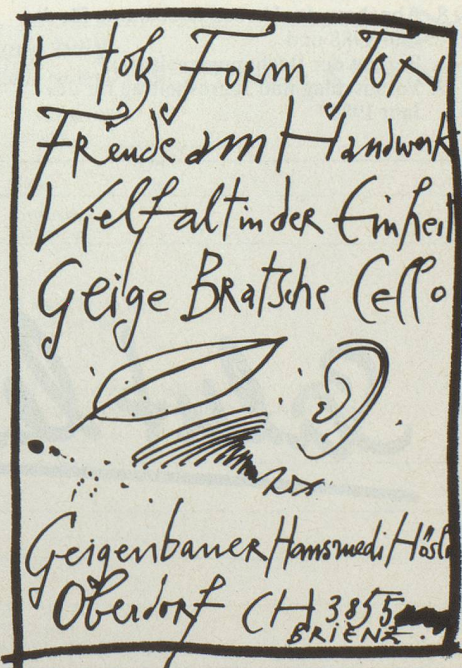 Holz Form Ton
Freude am Handwerk
Vielfalt in der Einheit
Geige Bratsche Cello
Geigenbauer Hansruedi Hösli
Oberdorf CH 3855
BRIENZ.